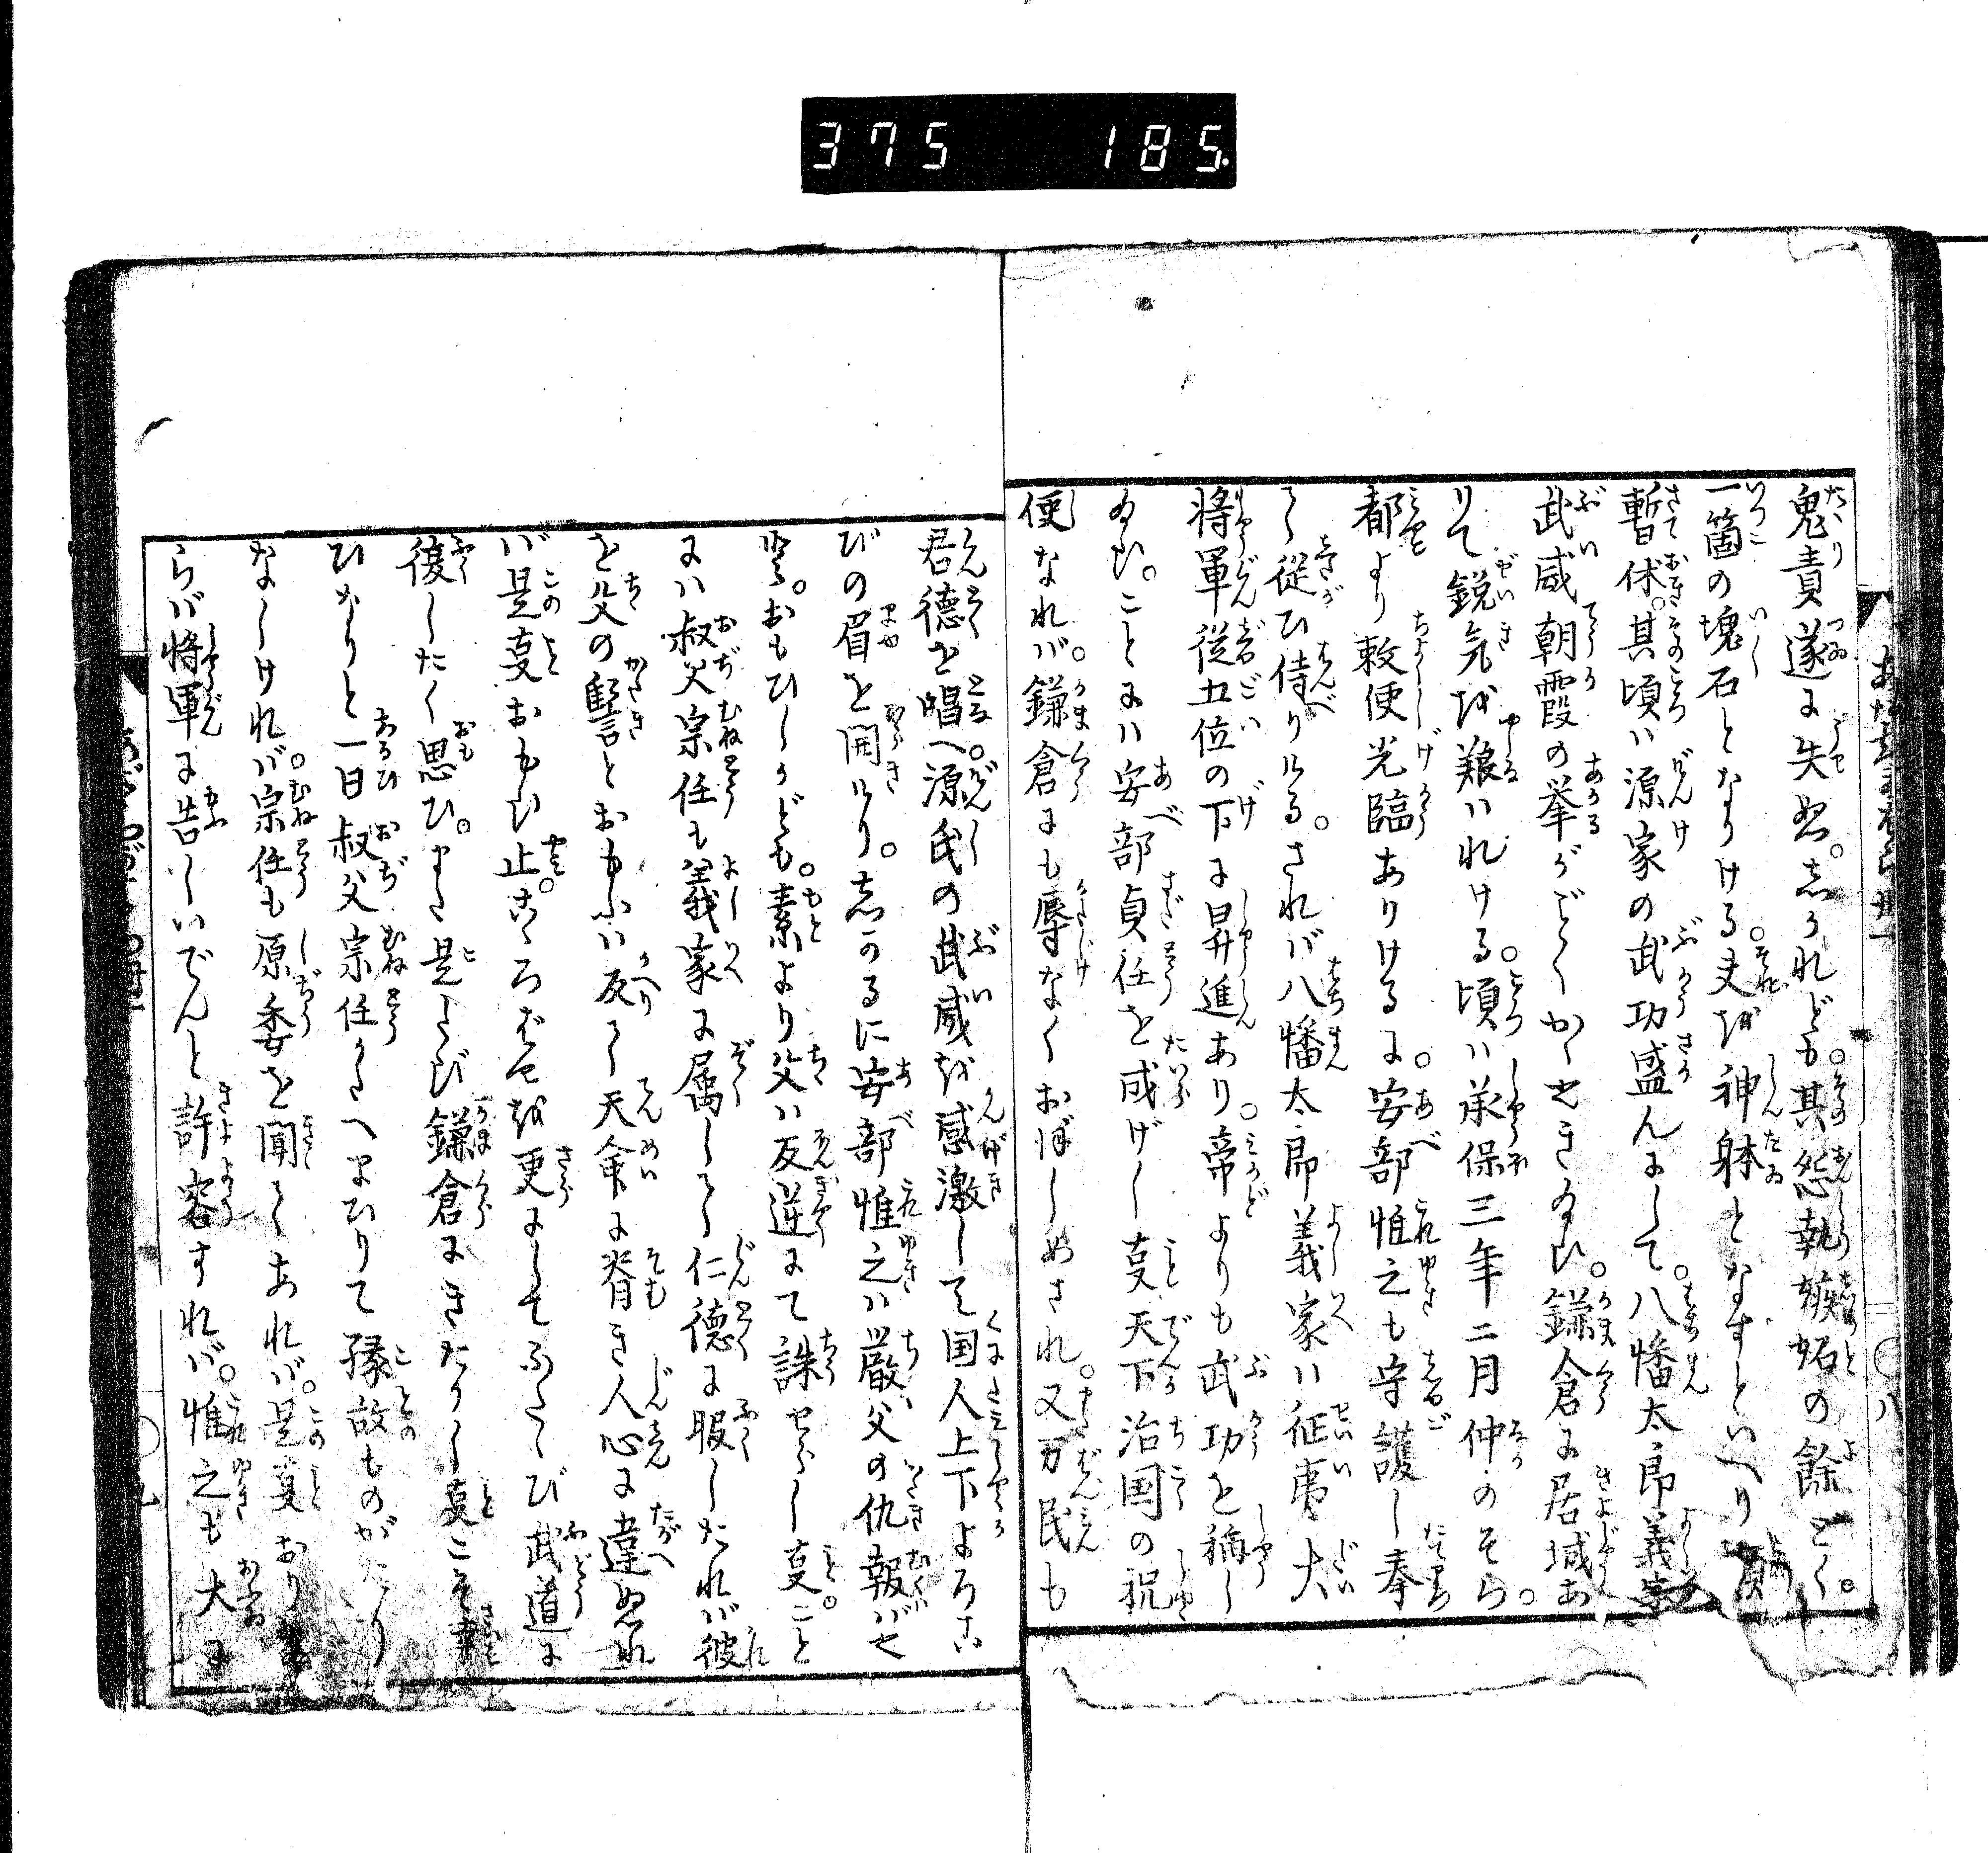 375 185
鬼責遂に失ぬ。しかれども。其怨執嫉妬の餘とく。
一箇の塊石となりける。夫を神躰となすといへり
暫休。其頃は源家の武功盛んにして。八幡太郎義家
武威朝霞の挙がごとくかゝやきゐひ。鎌倉に居城あ
りて鋭気を艱はれける。頃は承保三年二月仲のそら。
都より敕使光臨ありけるに。安部惟之も守護し奉
て従ひ侍りける。されば八幡太郎義家は征夷大
将軍従五位の下に昇進あり。帝よりも武功を称し
ゐひ。ことには安部貞任を成げし事天下治国の祝
使なれば。鎌倉にも辱なくおぼしめされ。又万民も
君徳を唱へ。源氏の武威を感激して国人上下よろこ
びの眉を開けり。しかるに安部惟之は厳父の仇報ばや
おもひしかども。素より父は反逆にて誅せらし事。こと
には叔父宗任も義家に属して仁徳に服したれば彼
を父の讐とおもふは反て天命に脊き人心に違ぬれ
ば是事おもひ止。こゝろざしを更にしてふたゝび武道に
復したく思ひ。また是たび鎌倉にきたりし事こそ幸
ひなりと一日叔父宗任かたへまひりて縁故ものがたり
なしければ。宗任も原委を聞てあれば。是事おり
らば将軍に告しいでんと許容すれば。惟之も大に